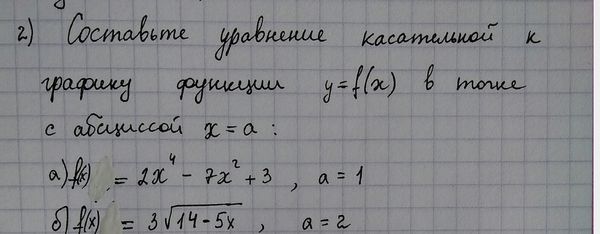 2) Составьте уравнение касательной к
графику функции y=f(x) в точке
с абсциссой x=a:
а) f(x) = 2x⁴ - 7x² + 3, a = 1
б) f(x) = 3√(14-5x), a = 2